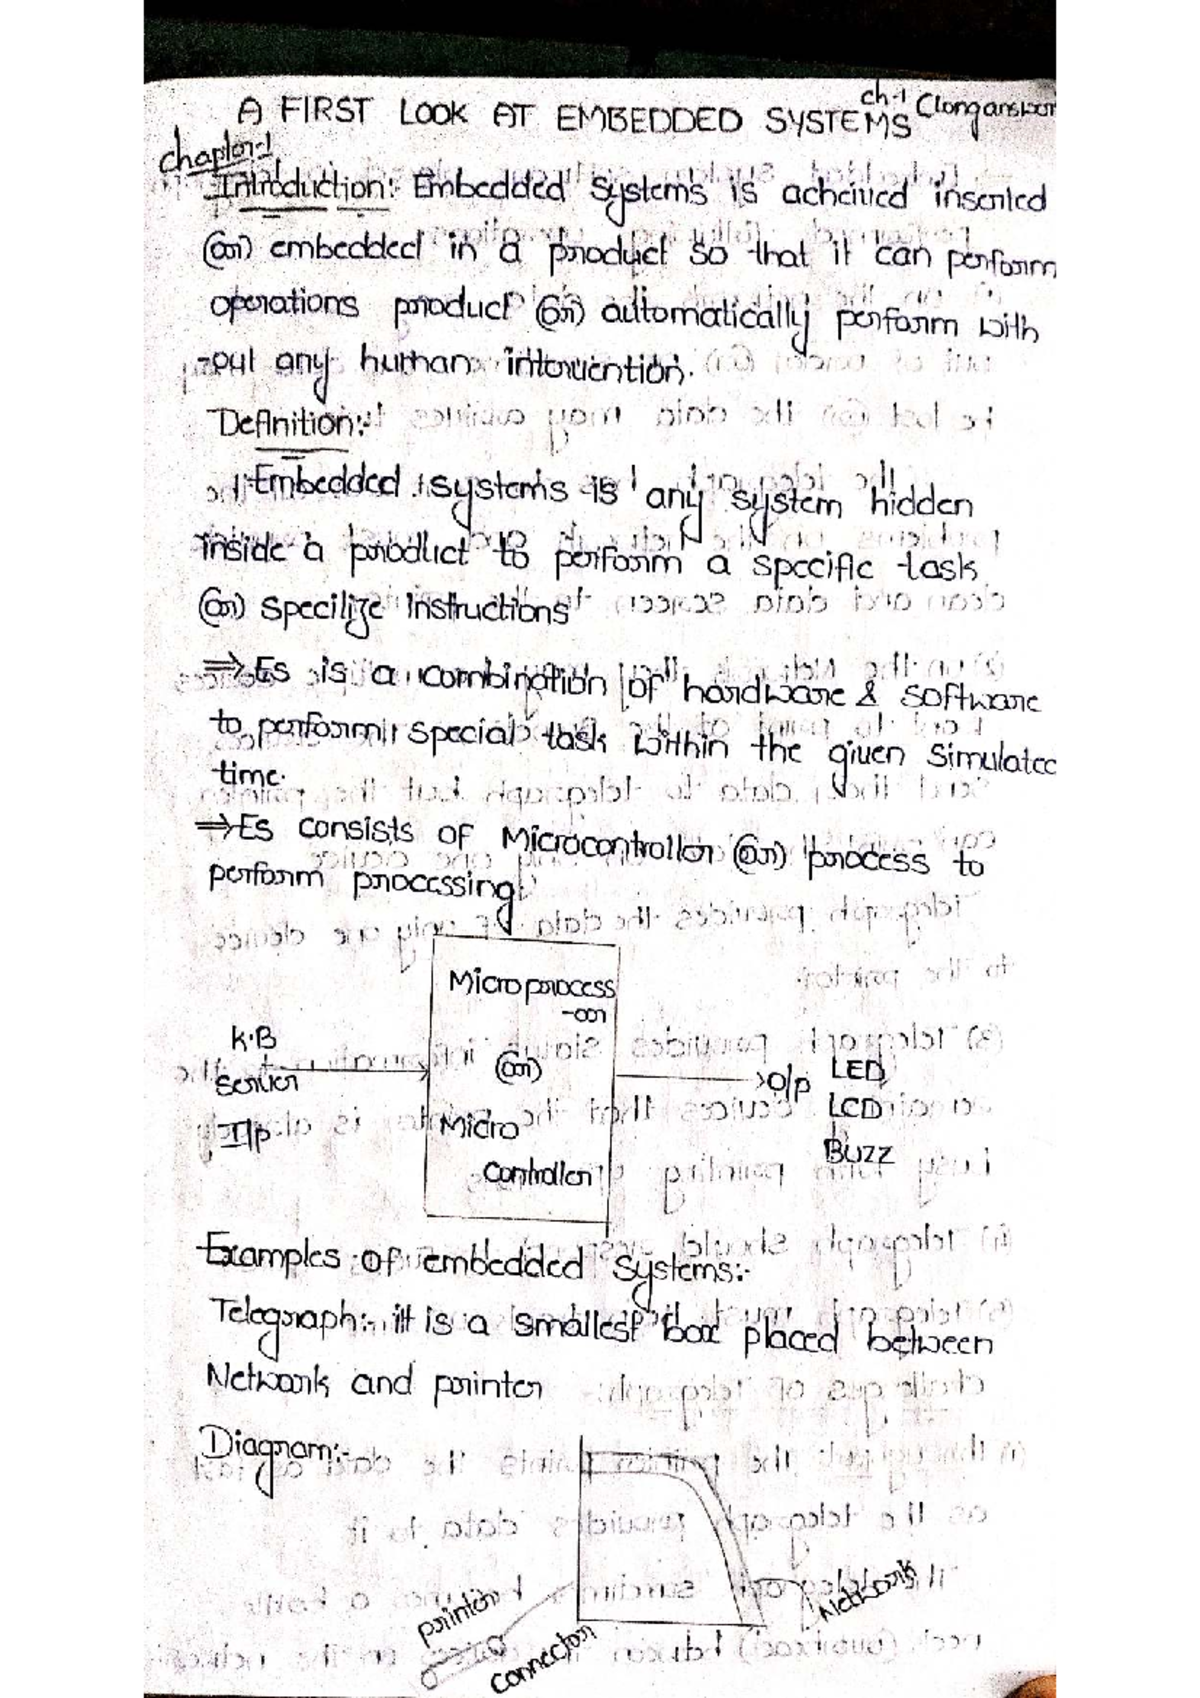 ch-1 (longanswer
A FIRST LOOK AT EMBEDDED SYSTEMS
chapter-1
Introduction:- Embedded Systems is acheived inserted
(or) embedded in a product so that it can perform
operations product (or) automatically perform with
-out any human intervention.
Definition:-
Embedded systems is any system hidden
inside a product to perform a specific task
(or) Specilize Instructions
⇒ Es is a combination of hardware & software
to perform special task within the given Simulated
time.
⇒ Es consists of Microcontroller (or) process to
perform processing.
Microprocess
-or
(or)
Micro
Controller
K.B
Server
I/p
O/p
LED
LCD
BUZZ
Examples of embedded Systems:-
Telegraph:- it is a smallest box placed between
Network and printer
Diagram:-
printer
connector
Network